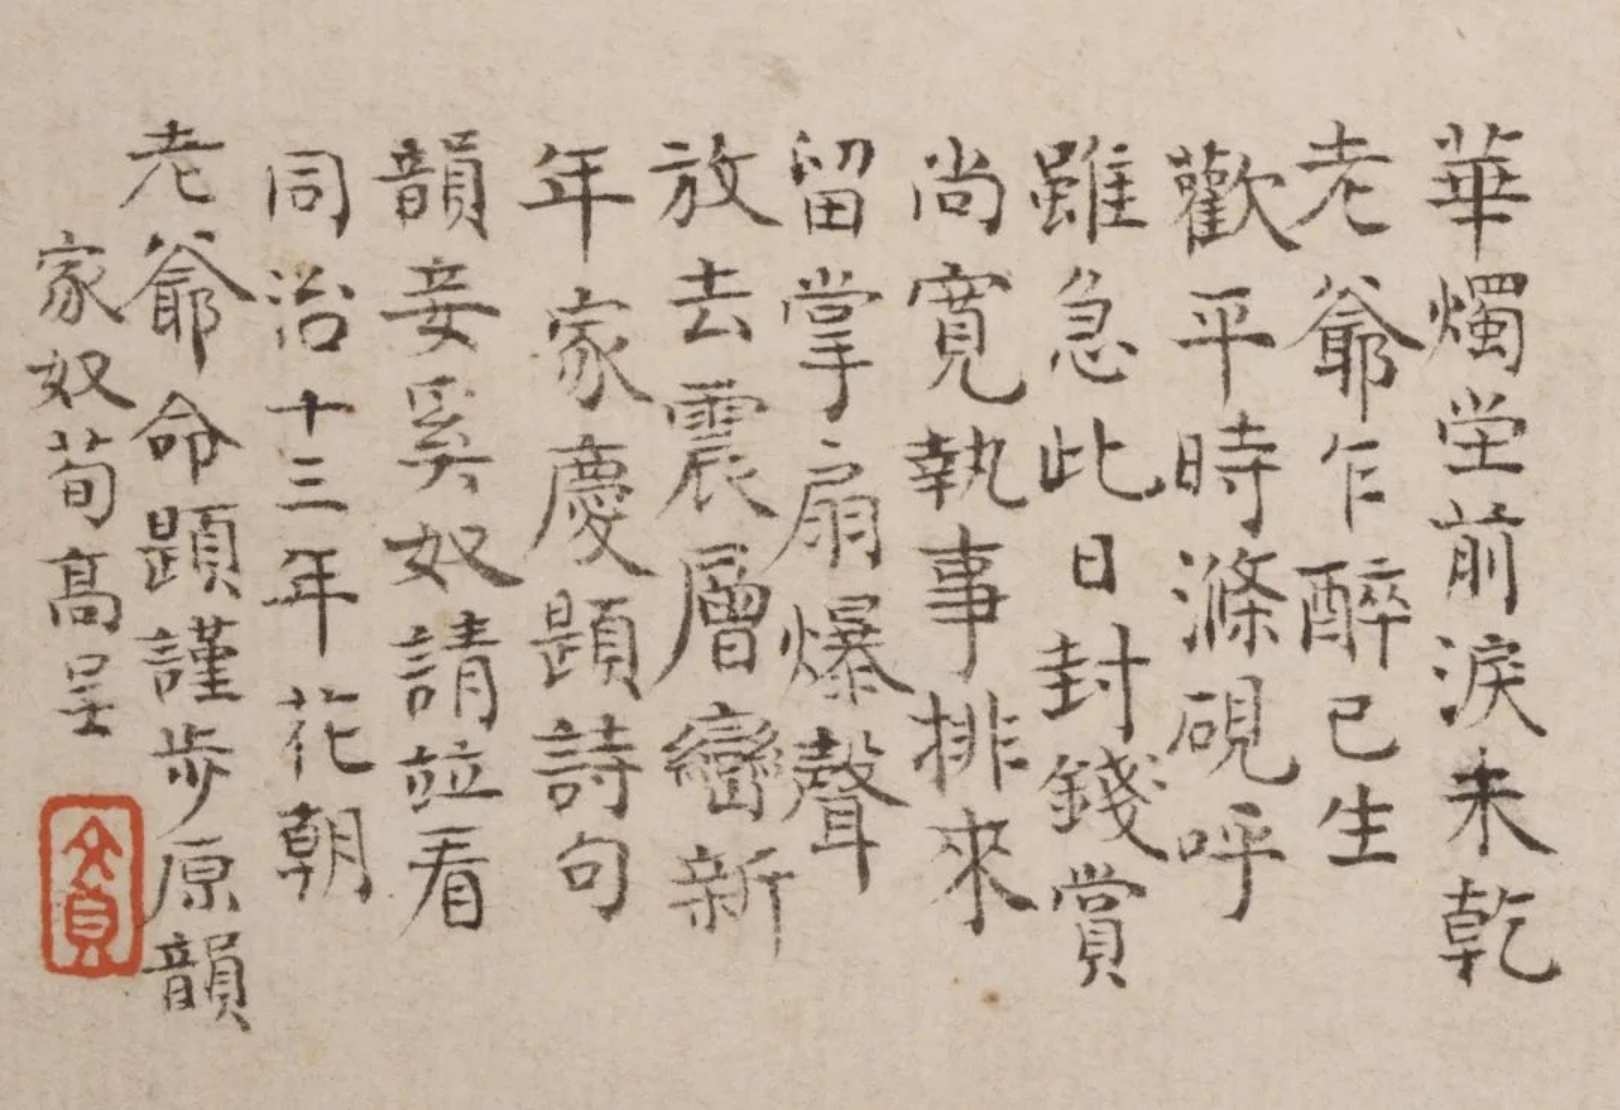 華燭堂前淚未乾
老爺乍醉已生
歡平時滌硯呼
雖急此日封錢賞
尚寬執事排來
留掌扇爆聲
放去震層巒新
年家慶題詩句
韻妾奚奴請竝看
同治十三年花朝
老爺命題謹步原韻
家奴荀高呈